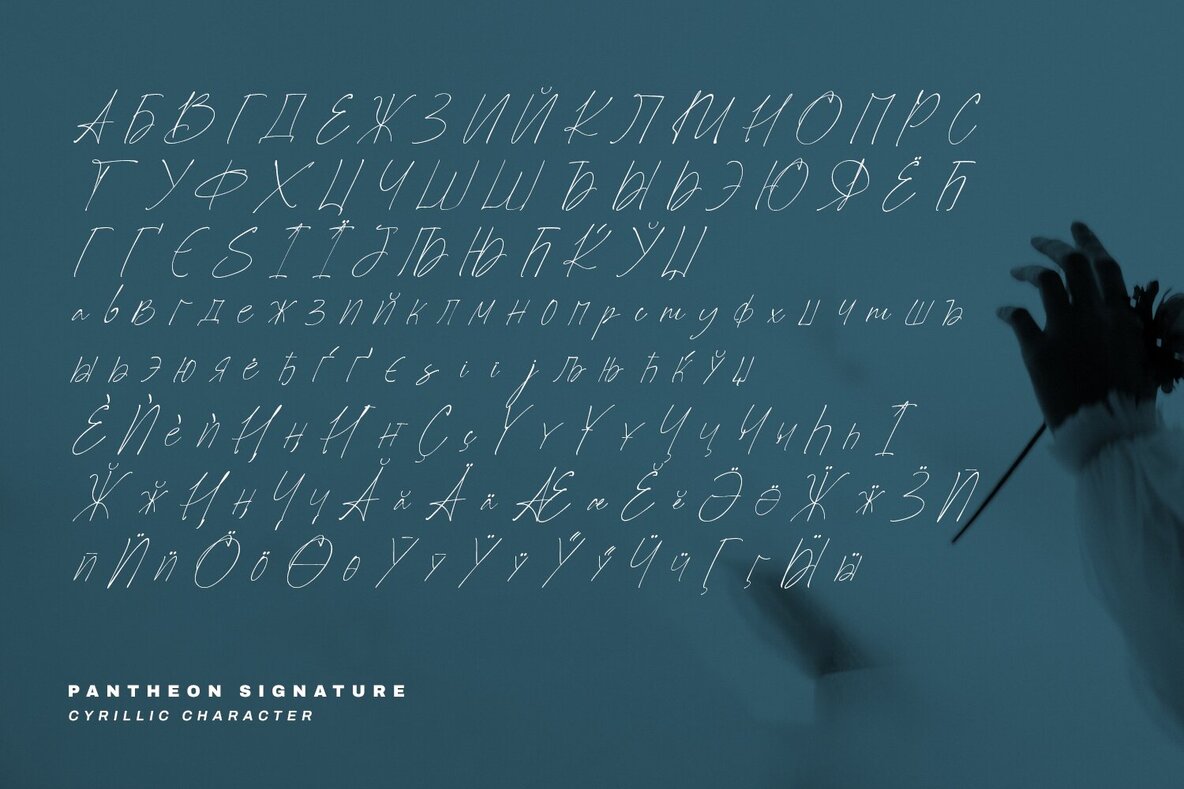 А Б В Г Д Е Ж З И Й К Л М Н О П Р С
Т У Ф Х Ц Ч Ш Щ Ъ Ы Ь Э Ю Я Ё Ђ
Ѓ Ґ Є Ѕ І Ї Ј Љ Њ Ћ Ќ Ў Џ
а б в г д е ж з и й к л м н о п р с т у ф х ц ч ш щ ъ
ы ь э ю я ё ђ ѓ ґ є ѕ і ї ј љ њ ћ ќ ў џ
Ѐ Ѝ ѐ ѝ Ң ң Ҥ ҥ Ҫ ҫ Ү ү Ұ ұ Ҷ ҷ Ҹ ҹ Һ һ Ӏ
Ӂ ӂ Ӊ ӊ Ӌ ӌ Ӑ ӑ Ӓ ӓ Ӕ ӕ Ӗ ӗ Ӛ ӛ Ӝ ӝ Ӟ Ӣ
ӣ Ӥ ӥ Ӧ ӧ Ө ө Ӯ ӯ Ӱ ӱ Ӳ ӳ Ӵ ӵ Ӷ ӷ Ӹ ӹ
PANTHEON SIGNATURE
CYRILLIC CHARACTER